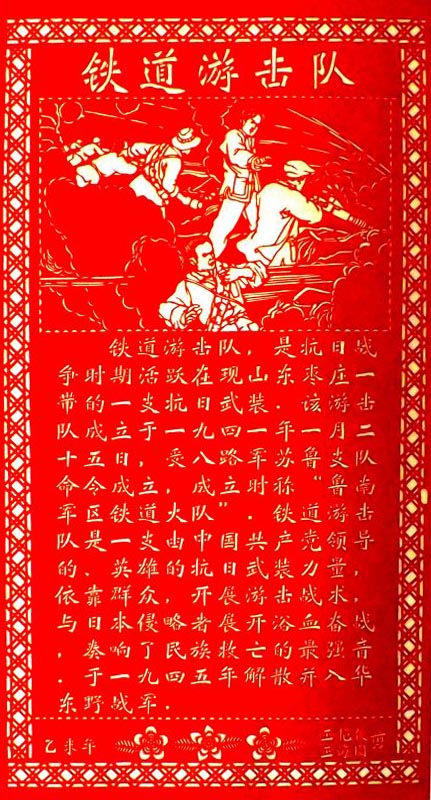 铁道游击队
铁道游击队，是抗日战
争时期活跃在现山东枣庄一
带的一支抗日武装．该游击
队成立于一九四一年一月二
十五日，受八路军苏鲁支队
命令成立，成立时称“鲁南
军区铁道火队”．铁道游击
队是一支由中国共产党领导
的、英雄的抗日武装力量，
依靠群众，开展游击战术，
与日本侵略者展开浴血奋战
．奏响了民族救亡的最强音
．于一九四五年解散并入华
东野战军．
乙未年
剪